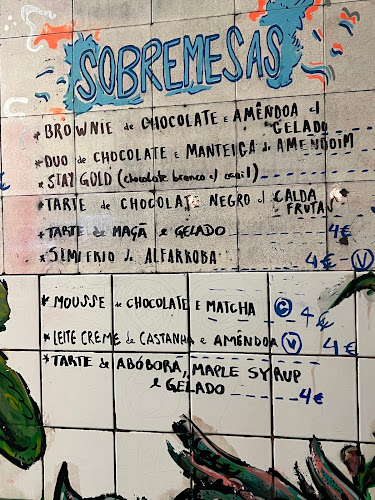 SOBREMESAS
* BROWNIE de CHOCOLATE E AMÊNDOA c/
GELADO
* DUO de CHOCOLATE E MANTEIGA de AMENDOIM
* STAY GOLD (chocolate branco c/
* TARTE de CHOCOLATE NEGRO c/ CALDA
FRUTAS
* TARTE de MAÇÃ e GELADO 4€
* SEMIFRIO de ALFARROBA 4€ - V
* MOUSSE de CHOCOLATE E MATCHA C 4€
* LEITE CREME de CASTANHA e AMÊNDOA V 4€
* TARTE de ABÓBORA, MAPLE SYRUP
e GELADO 4€